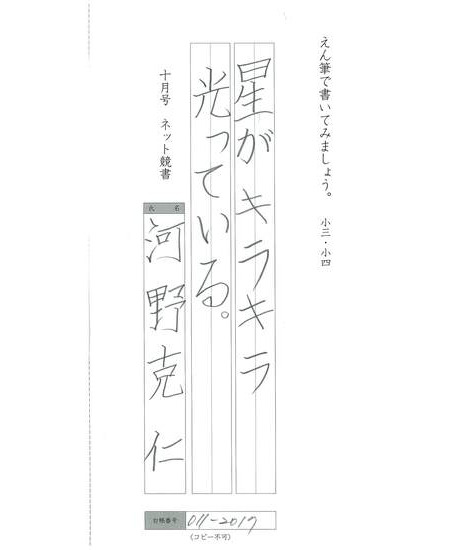 えん筆で書いてみましょう。 小三・小四
星がキラキラ
光っている。
十月号 ネット競書
氏 名
河野克仁
台帳番号 011-2017
(コピー不可)